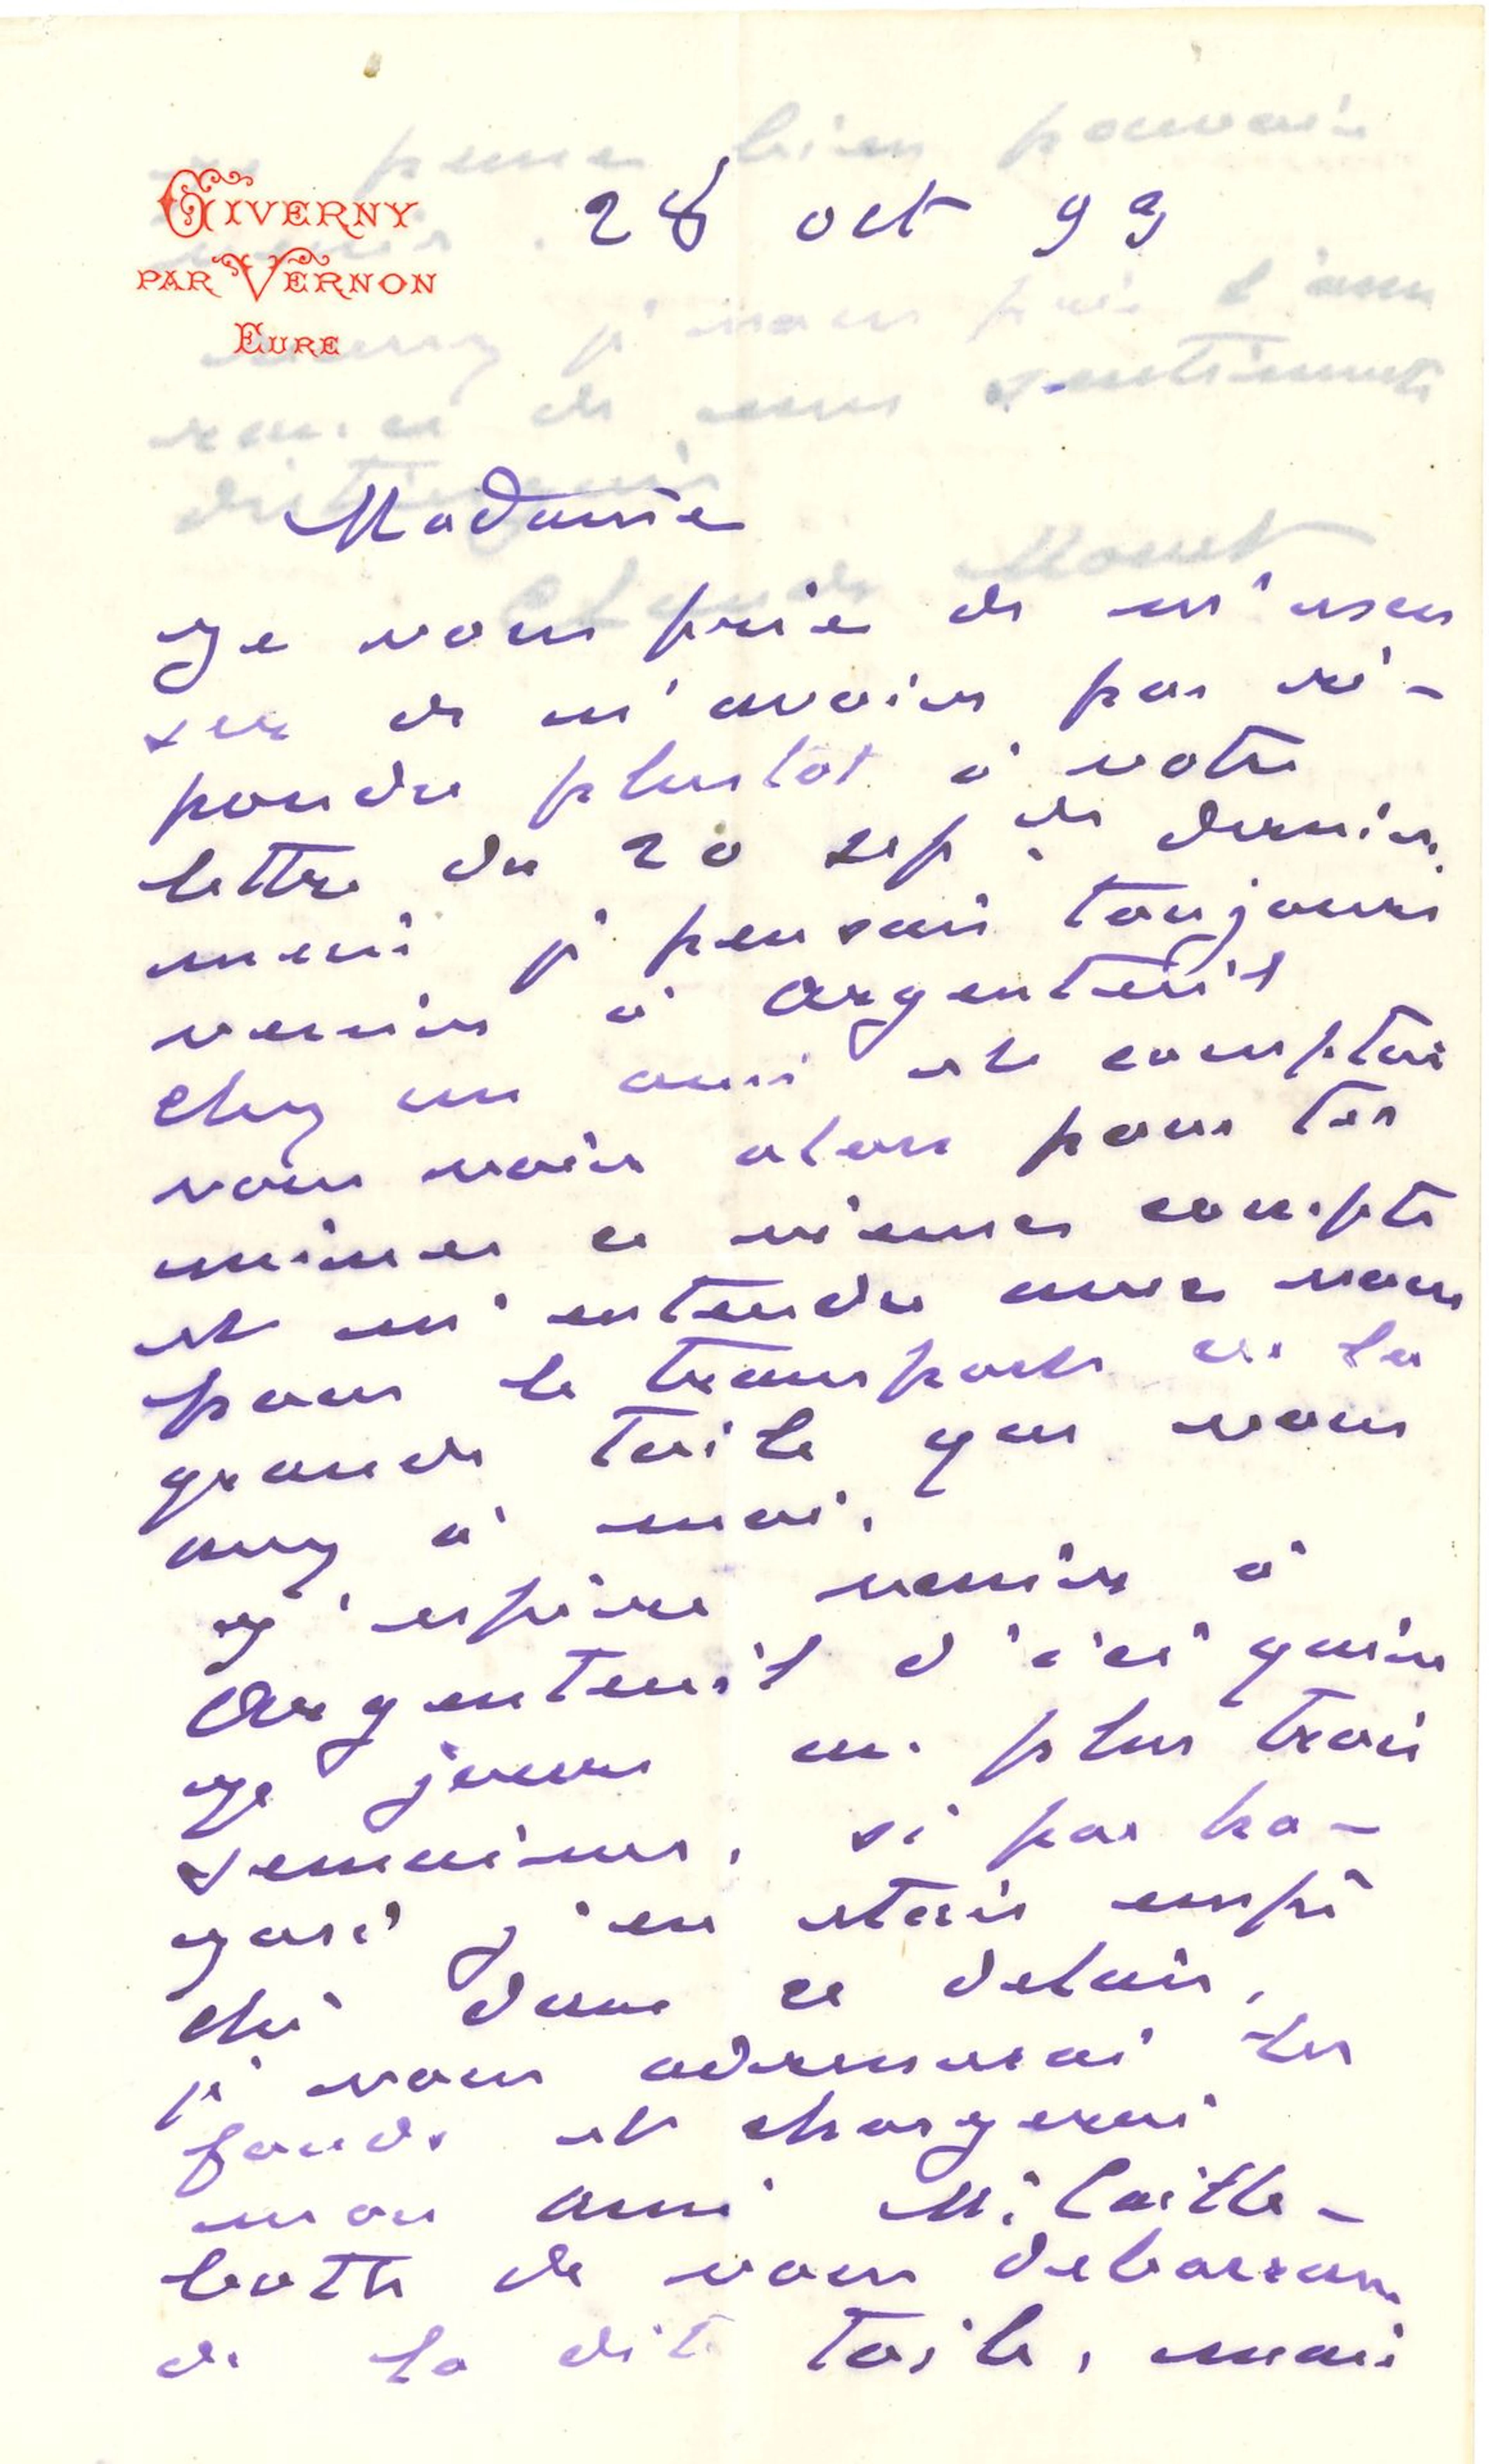 GIVERNY
PAR VERNON
EURE
28 oct 99
Madame
Je vous prie de m'excu
ser de n'avoir pas ré-
pondu plustot à votre
lettre du 20 sep de dernier.
mais je pensais toujours
venir à Argenteuil
chez un ami et comptais
vous voir alors pour ter
miner ce vieux compte
et m'entendre avec vous
pour le transport de la
grande toile que vous
avez à moi.
J'espère venir à
Argenteuil d'ici quin
ze jours au plus trois
semaines, si par ha-
zard j'en étais empê
ché dans ce delais,
je vous adresserai les
fonds et chargerai
mon ami M. Caille-
botte de vous debarrasser
de la dite toile, mais